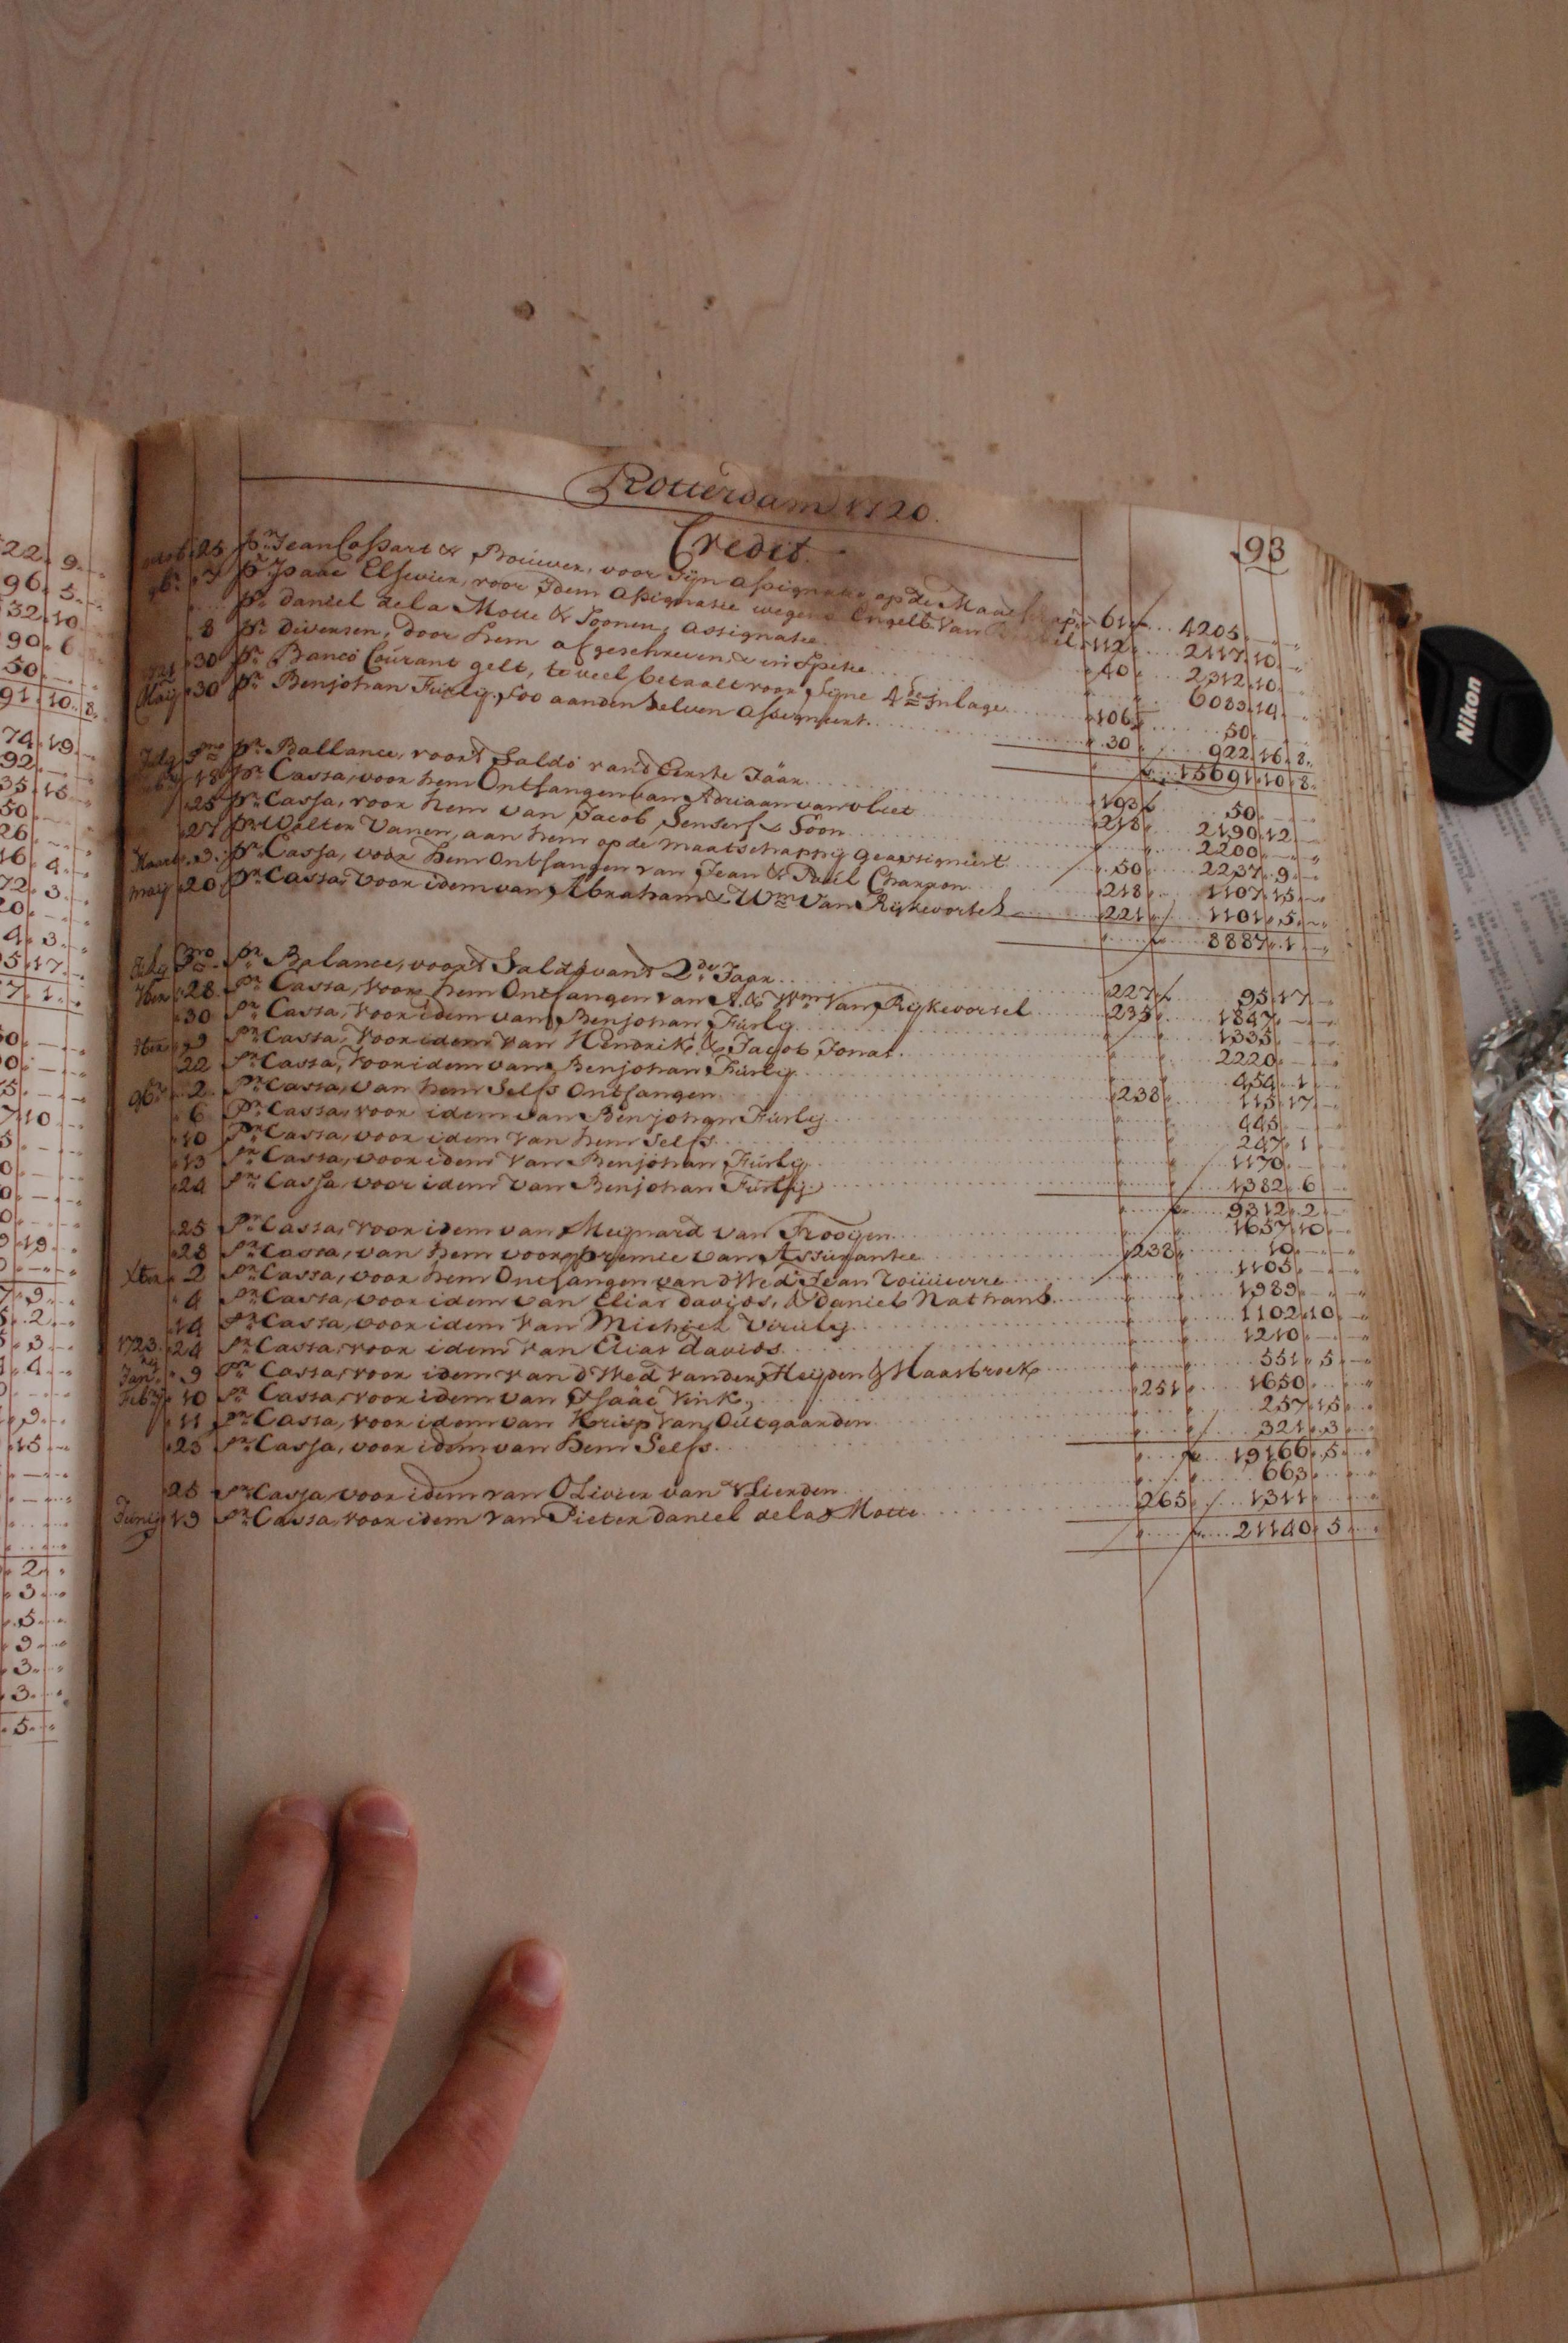 Rotterdam 1720.
Credit.
93
25 Pr. Jean Cossart & Bouwer, voor sijn assignatie op de Maatschapp. 61 4205
9br. 7 Pr. Isaac Elsevier, voor Idem assignatie wegens Engelb. Van 112 2117 10
Pr. Daniel de la Motte & Soonen, assignatie 40 2312 10
8 Pr. Diversen, door hem afgeschreven, & in Spetie 6083 14
1721 30 Pr. Banco Courant gelt, te veel betaalt voor Signe 4de inlage 106 50
Maij 30 Pr. Benjohan Fúrlij, soo aan denselven assigneert. 30 922 16 8
15691 10 8
Julij Pmo Pr. Ballance, voor't Saldo van't Eerste Jaar 193 50
18 Pr. Cassa, voor hem Ontfangen van Adriaan van vliet 218 2190 12
25 Pr. Cassa, voor hem van Jacob Senserf & Soon 2200
27 Pr. Wolter Vanen, aan hem op de maatschappij geassigneert 50 2237 9
Maart 3 Pr. Cassa, voor hem Ontfangen van Jean & Paul Charron 218 1107 15
Maij 20 Pr. Cassa, voor idem van Abraham & Wm. Van Rijkevorsel 221 1101 5
8887 1
Julij Pmo Pr. Balance, voor't Saldo van't 2de Jaar 227 95 17
7ber 28 Pr. Cassa, voor hem Ontfangen van A. & Wm Van Rijkevorsel 235 1847
30 Pr. Cassa, voor idem van Benjohan Fúrlij 1335
8ber 9 Pr. Cassa, voor idem van Hendrik & Jacob Jonas 2220
22 Pr. Cassa, voor idem van Benjohan Fúrlij 454 1
9br. 2 Pr. Cassa, van hem Selfs Ontfangen 238 115 17
6 Pr. Cassa, voor idem van Benjohan Fúrlij 445
10 Pr. Cassa, voor idem van hem Selfs 247 1
13 Pr. Cassa, voor idem van Benjohan Fúrlij 1170
24 Pr. Cassa, voor idem van Benjohan Fúrlij 1382 6
9312 2
25 Pr. Cassa, voor idem van Meijnard van Trooijen 1657 10
28 Pr. Cassa, van hem voor premie van Assúrantie 238 10
Xber 2 Pr. Cassa, voor hem Ontfangen van d'Wed. Jean 1105
4 Pr. Cassa, voor idem van Elias davids, & Daniel Nathans 1989
14 Pr. Cassa, voor idem van Michiel Virúlij 1102 10
24 Pr. Cassa, voor idem van Elias davids 1210
1723
Jany 9 Pr. Cassa, voor idem van d'Wed. vander Heijden & Maasbroek 551 5
Febr. 10 Pr. Cassa, voor idem van Isaäc Vink, 251 1650
11 Pr. Cassa, voor idem van Krisp Van Outgaarden 257 15
23 Pr. Cassa, voor idem van hem Selfs 321 3
19166 5
25 Pr. Cassa, voor idem van Olivier van Vlierden 663
Junij 19 Pr. Cassa, voor idem van Pieter Daniel dela Motte 265 1311
21140 5
Nikon